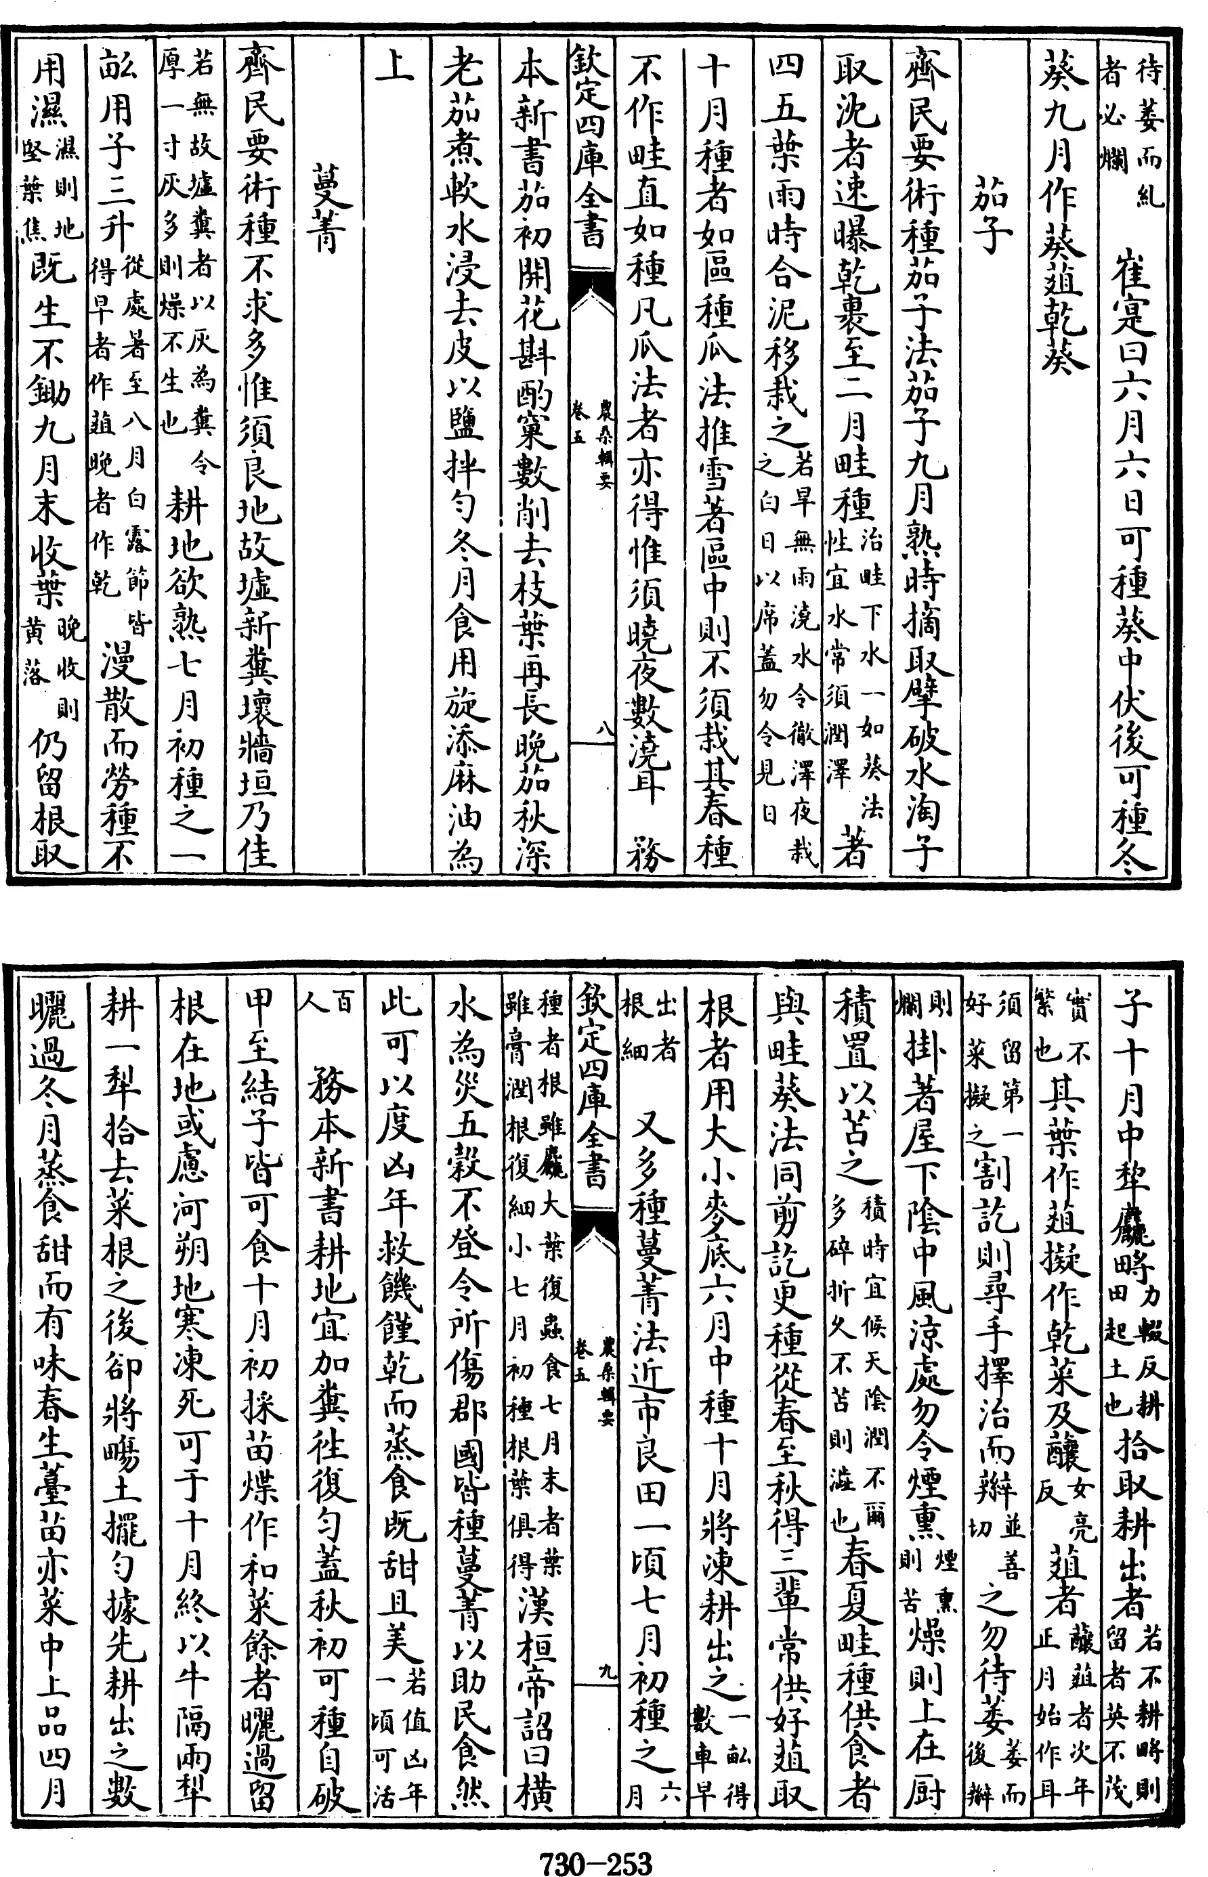 待萎而糺者必爛 崔寔曰六月六日可種葵中伏後可種冬
葵九月作葵葅乾葵
茄子
齊民要術種茄子法茄子九月熟時摘取擘破水淘子
取沈者速曝乾裹至二月畦種治畦下水一如葵法性宜水常須潤澤著
四五葉雨時合泥移栽之若旱無雨澆水令徹澤夜栽之白日以席蓋勿令見日
十月種者如區種瓜法推雪著區中則不須栽其春種
不作畦直如種凡瓜法者亦得惟須曉夜數澆耳 務
欽定四庫全書 農桑輯要 卷五 八
本新書茄初開花斟酌窠數削去枝葉再長晚茄秋深
老茄煮軟水浸去皮以鹽拌勻冬月食用旋添麻油為
上
蔓菁
齊民要術種不求多惟須良地故墟新糞壞牆垣乃佳
若無故墟糞者以灰為糞令厚一寸灰多則燥不生也耕地欲熟七月初種之一
畝用子三升從處暑至八月白露節皆得早者作葅晚者作乾漫散而勞種不
用濕濕則地堅葉焦既生不鋤九月末收葉晚收則黄落仍留根取
子十月中犂麤畤力輟反耕田起土也拾取耕出者若不耕畤則留者英不茂
實不繁也其葉作葅擬作乾菜及釀女亮反葅者釀葅者次年正月始作耳
須留第一好菜擬之割訖則尋手擇治而辮並善切之勿待萎萎而後辮
則爛掛著屋下陰中風涼處勿令煙熏煙熏則苦燥則上在厨
積置以苫之積時宜候天陰潤不爾多碎折久不苫則澁也春夏畦種供食者
與畦葵法同剪訖更種從春至秋得三輩常供好葅取
根者用大小麥底六月中種十月將凍耕出之一畝得數車早
出者根細 又多種蔓菁法近市良田一頃七月初種之六月
欽定四庫全書 農桑輯要 卷五 九
種者根雖麤大葉復蟲食七月末者葉雖膏潤根復細小七月初種根葉俱得漢桓帝詔曰橫
水為災五穀不登令所傷郡國皆種蔓菁以助民食然
此可以度凶年救饑饉乾而蒸食既甜且美若值凶年一頃可活
百人 務本新書耕地宜加糞徃復勻蓋秋初可種自破
甲至結子皆可食十月初採苗煠作和菜餘者曬過留
根在地或慮河朔地寒凍死可于十月終以牛隔兩犂
耕一犂拾去菜根之後卻將暘土擺勻據先耕出之數
曬過冬月蒸食甜而有味春生薹苗亦菜中上品四月
730-253